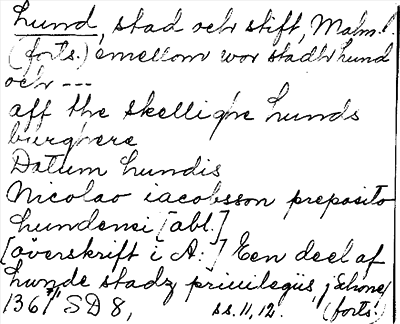 Lund, stad och stift, Malm.l.
(forts.) emellom wor stadh lund
och ---
aff the skellighe lunds
burghere
Datum lundis
Nicolao iacobsson preposito
lundensi [abl.]
[överskrift i A:] Een deel af
lunde stadz priuilegiis, j skone/
1367 SD 8, ss. 11, 12. (forts.)